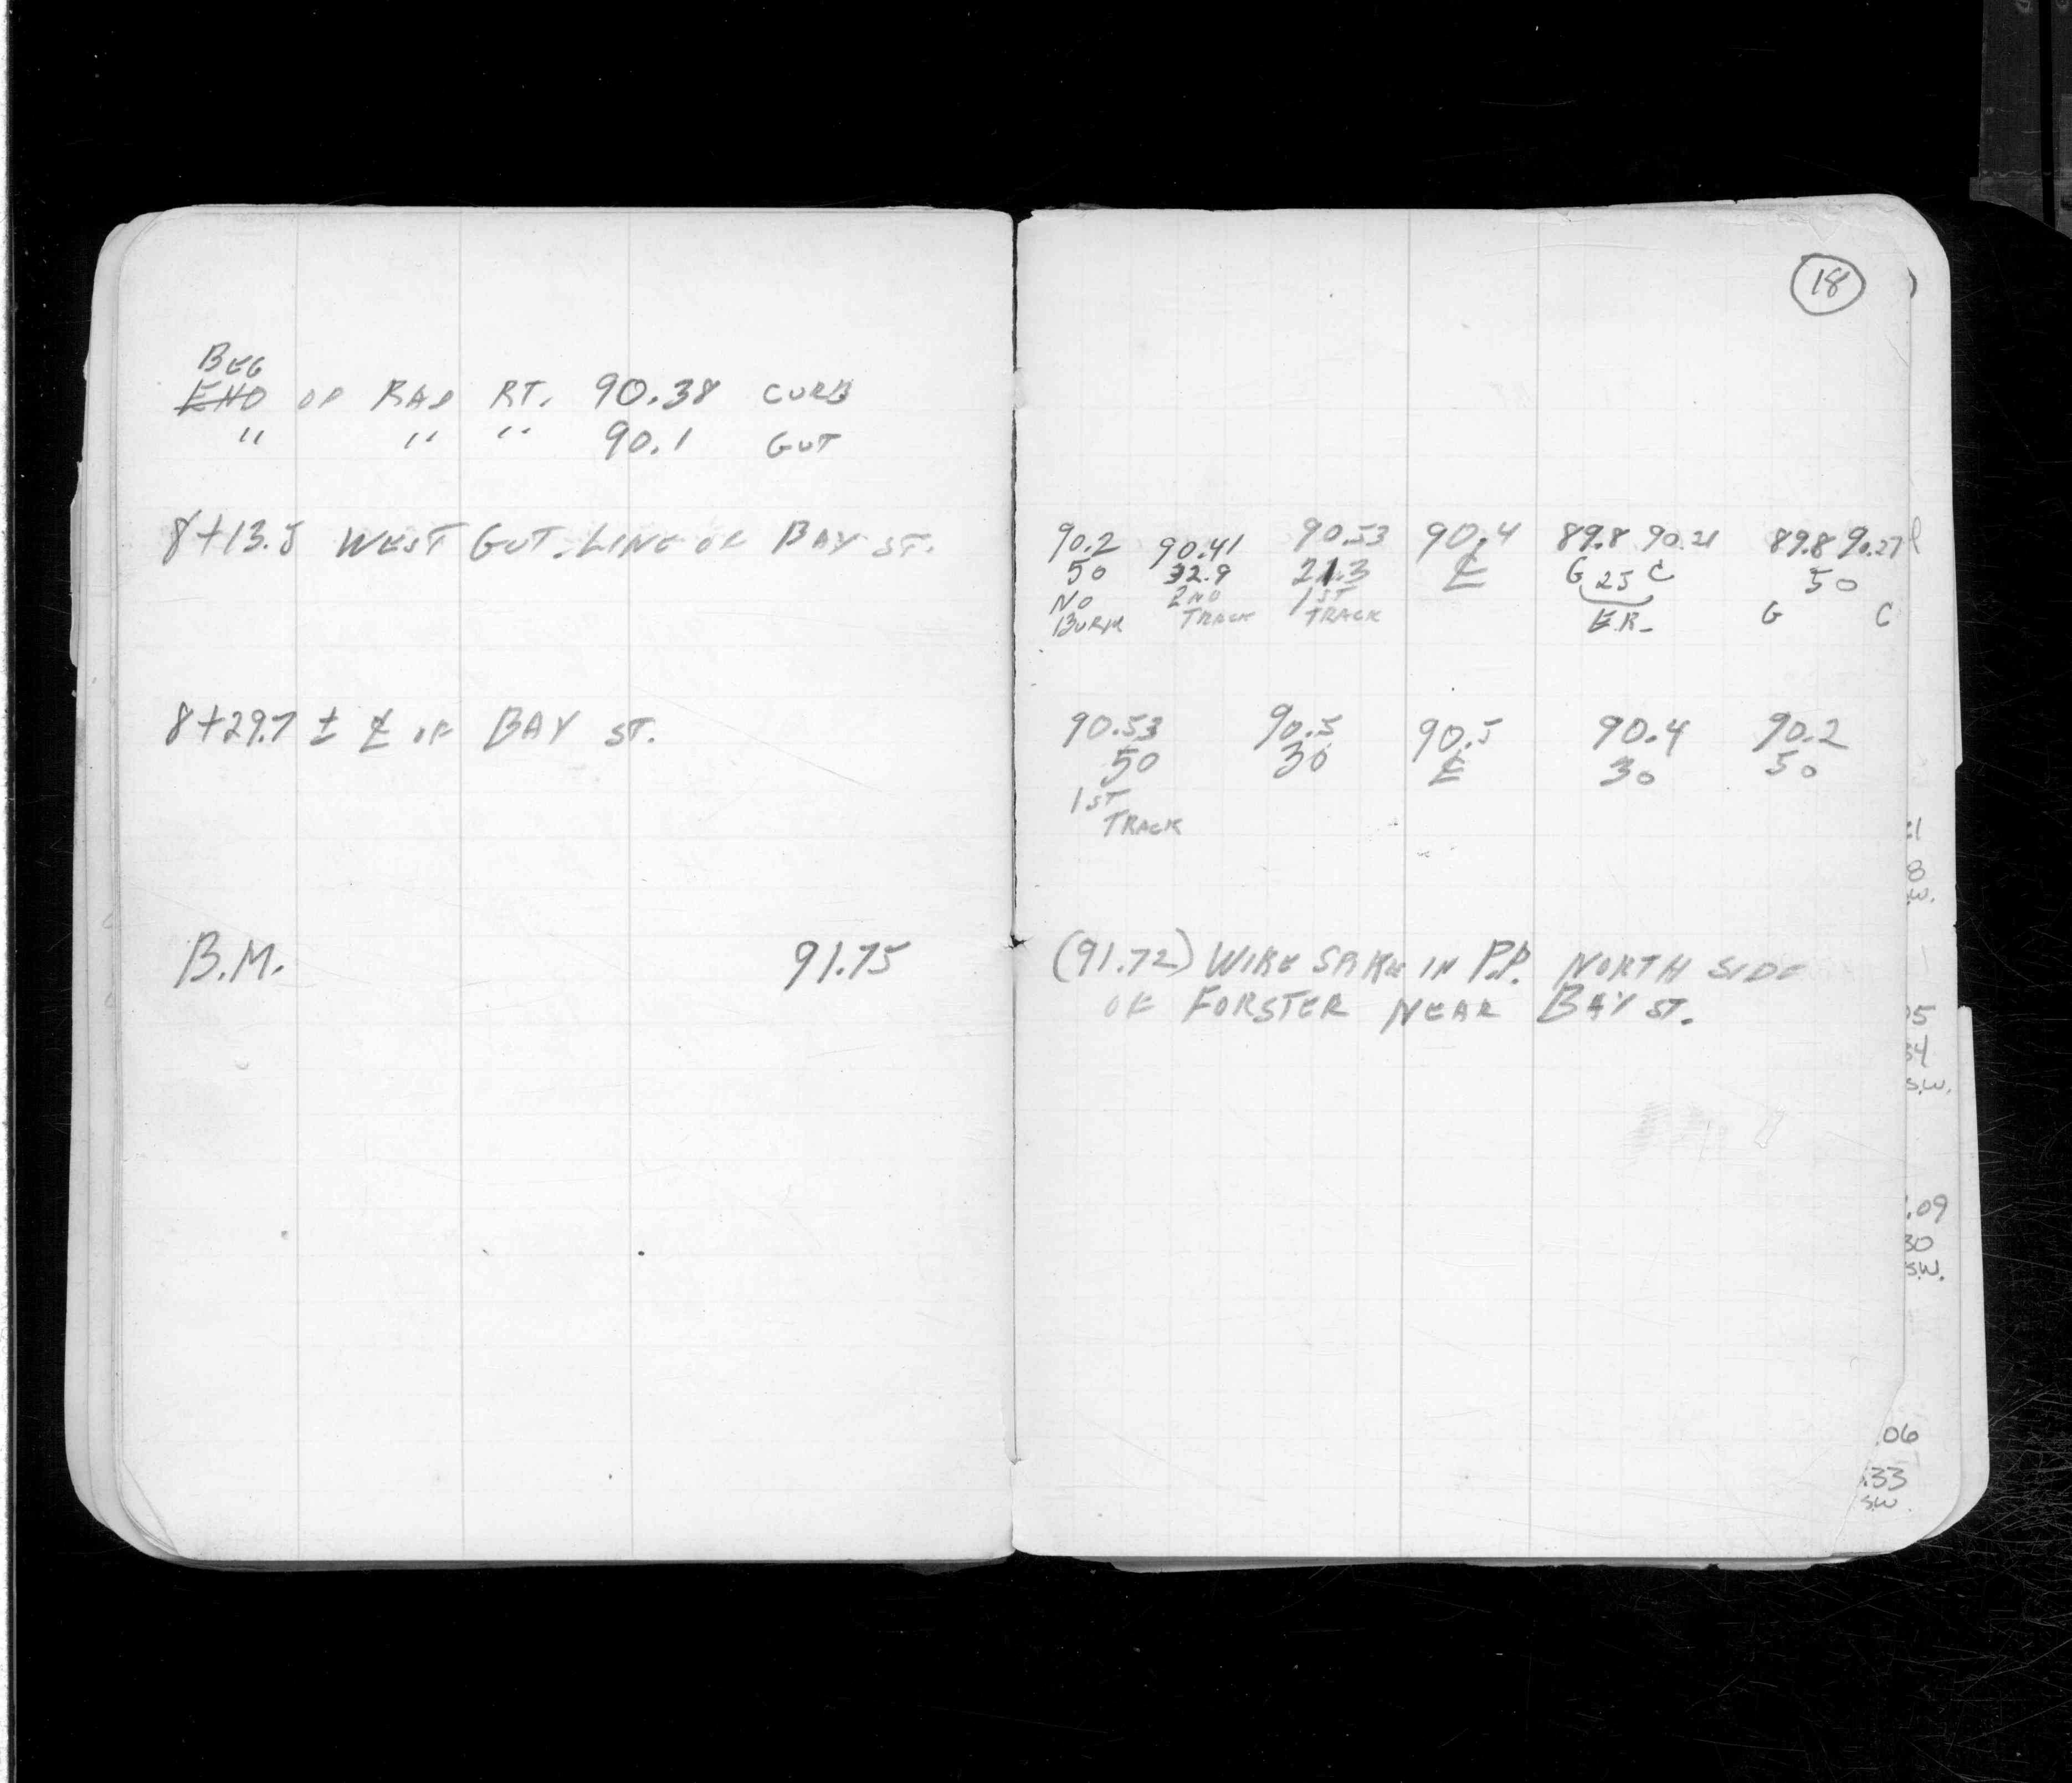 BEG
END OF RAD RT. 90.38 CURB
" " " 90.1 GUT
8+13.5 WEST GUT. LINE OF BAY ST.
8+29.7 ± ℄ OF BAY ST.
B.M. 91.75
18
90.2 90.41 90.53 90.4 89.8 90.21 89.8 90.27
50 32.9 21.3 ℄ G 25 C 50
NO 2ND 1ST
BURM TRACK TRACK E.R. G C
90.53 90.5 90.5 90.4 90.2
50 30 ℄ 30 50
1ST
TRACK
(91.72) WIRE SPIKE IN P.P. NORTH SIDE
OF FORSTER NEAR BAY ST.
8
.W.
05
34
S.W.
.09
30
S.W.
.06
.33
S.W.